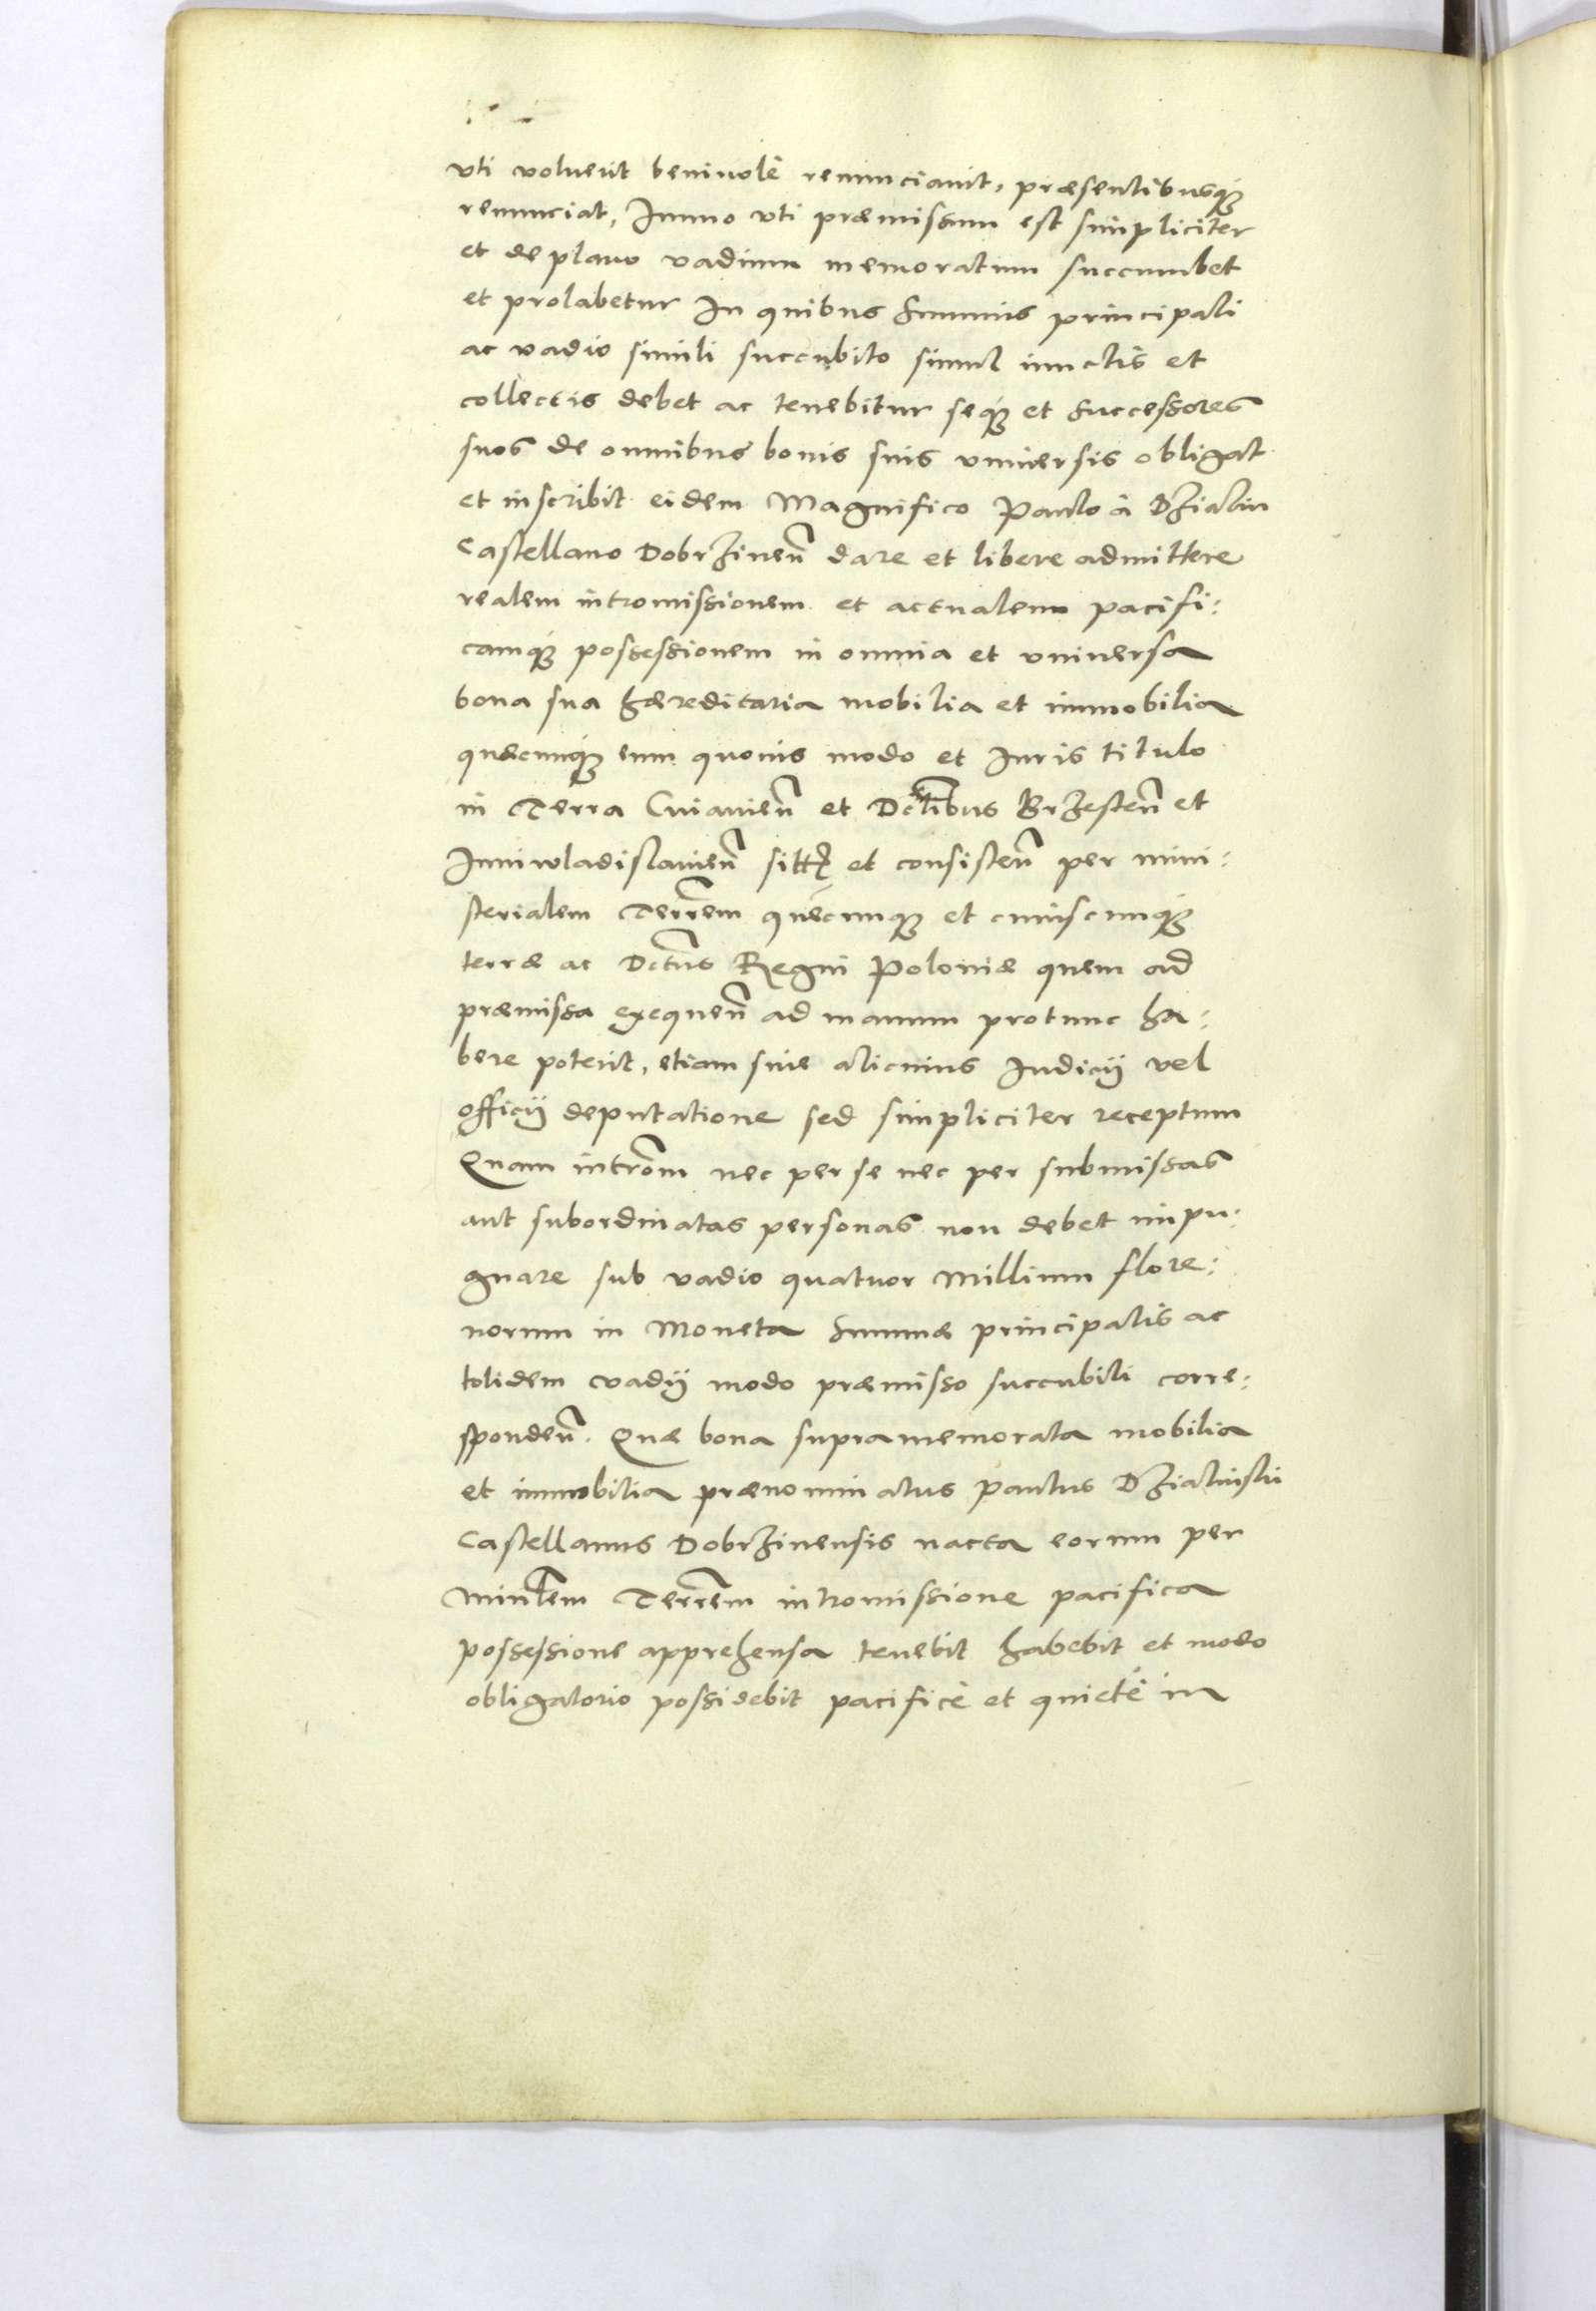 vti voluerit beniuolè renunciauit, præsentibusqꝫ
renunciat, Immo vti præmissum est simpliciter
et de plano vadium memoratum succumbet
et prolabetur In quibus summis principali
ac vadio simili succubito simul iunctis et
collectis debet ac tenebitur seqꝫ et successores
suos de omnibus bonis suis vniuersis obligat
et inscribit eidem Magnifico Paulo à Dzialin
Castellano Dobrzineñ dare et libere admittere
realem intromissionem et actualem pacifi:
camqꝫ possessionem in omnia et vniuersa
bona sua hæreditaria mobilia et immobilia
quæcunqꝫ eum quouis modo et Iuris titulo
in Terra Cuiauieñ et Dctibus Brzesteñ et
Iuniwladislauieñ sittꝫ et consisteñ per mini:
sterialem Terrem quecunqꝫ et cuiuscunqꝫ
terræ ac Dctus Regni Poloniæ quem ad
præmissa exequeñ ad manum protunc ha:
bere poterit, etiam siue alicuius Iudicij vel
officij deputatione sed simpliciter receptum
Quam introm nec per se nec per submissas
aut subordinatas personas non debet impu:
gnare sub vadio quatuor Millium flore:
norum in Moneta summæ principalis ac
totidem vadij modo præmisso succubiti corre:
spondeñ. Quæ bona supramemorata mobilia
et immobilia prænominatus Paulus Dzialinski
Castellanus Dobrzinensis nacta eorum per
Minlem Terrem intromissione pacifica
possessione apprehensa tenebit habebit et modo
obligatorio possidebit pacificè et quietè in